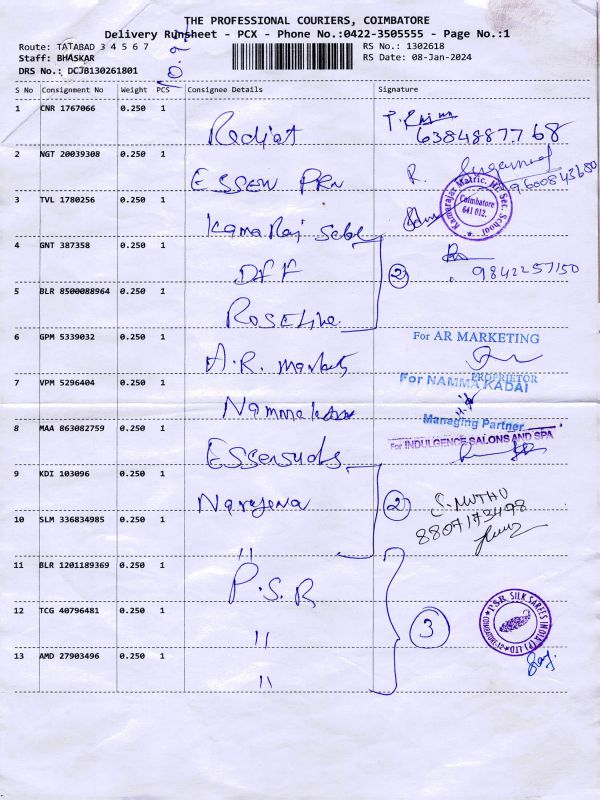 THE PROFESSIONAL COURIERS, COIMBATORE
Delivery Runsheet - PCX - Phone No.:0422-3505555 - Page No.:1
Route: TATABAD 3 4 5 6 7
RS No.: 1302618
Staff: BHASKAR
RS Date: 08-Jan-2024
DRS No.: DCJB130261801
S No Consignment No Weight PCS Consignee Details Signature
1 CNR 1767066 0.250 1
Rediat
63848877 68
2 NGT 20039308 0.250 1
ESSEN PRN
R.
9600843680
3 TVL 1780256 0.250 1
Kamaraj
Kamarajar Matric. Hr. Sec. School
Coimbatore
641 012.
4 GNT 387358 0.250 1
DFF
2
9842257150
5 BLR 8500088964 0.250 1
Roseline
6 GPM 5339032 0.250 1
A.R. Markets
For AR MARKETING
PROPRIETOR
7 VPM 5296404 0.250 1
For NAMMA KADAI
Managing Partner
8 MAA 863082759 0.250 1
For INDULGENCE SALONS AND SPA
9 KDI 103096 0.250 1
Narayena
2
S. MUTHU
8807173498
10 SLM 336834985 0.250 1
"
11 BLR 1201189369 0.250 1
P.S.R
12 TCG 40796481 0.250 1
"
3
P.S.R. SILK SAREES INDIA (P) LTD
COIMBATORE
13 AMD 27903496 0.250 1
"